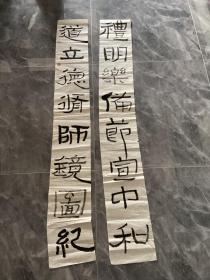 禮明樂備節宣中和
道立德脩師鏡圖紀